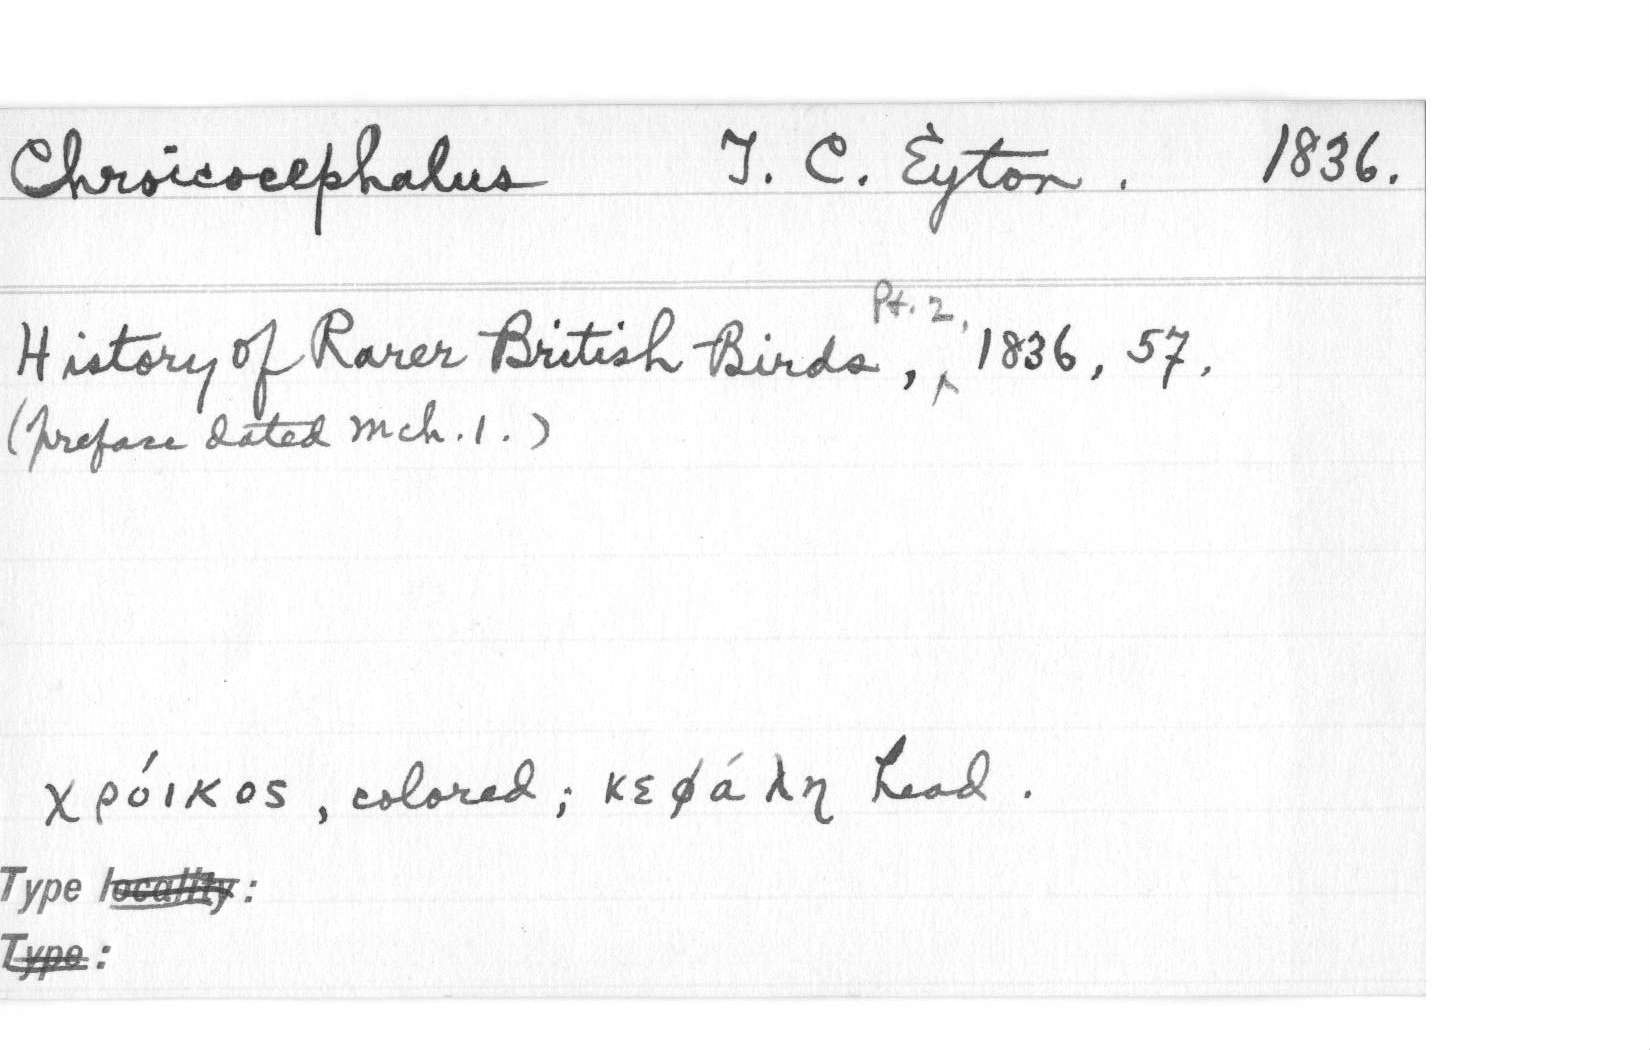 Chroicocephalus T. C. Eyton. 1836.
History of Rarer British Birds, Pt. 2, 1836, 57.
(preface dated Mch. 1.)
χρόικος, colored; κεφάλη head.
Type locality:
Type: